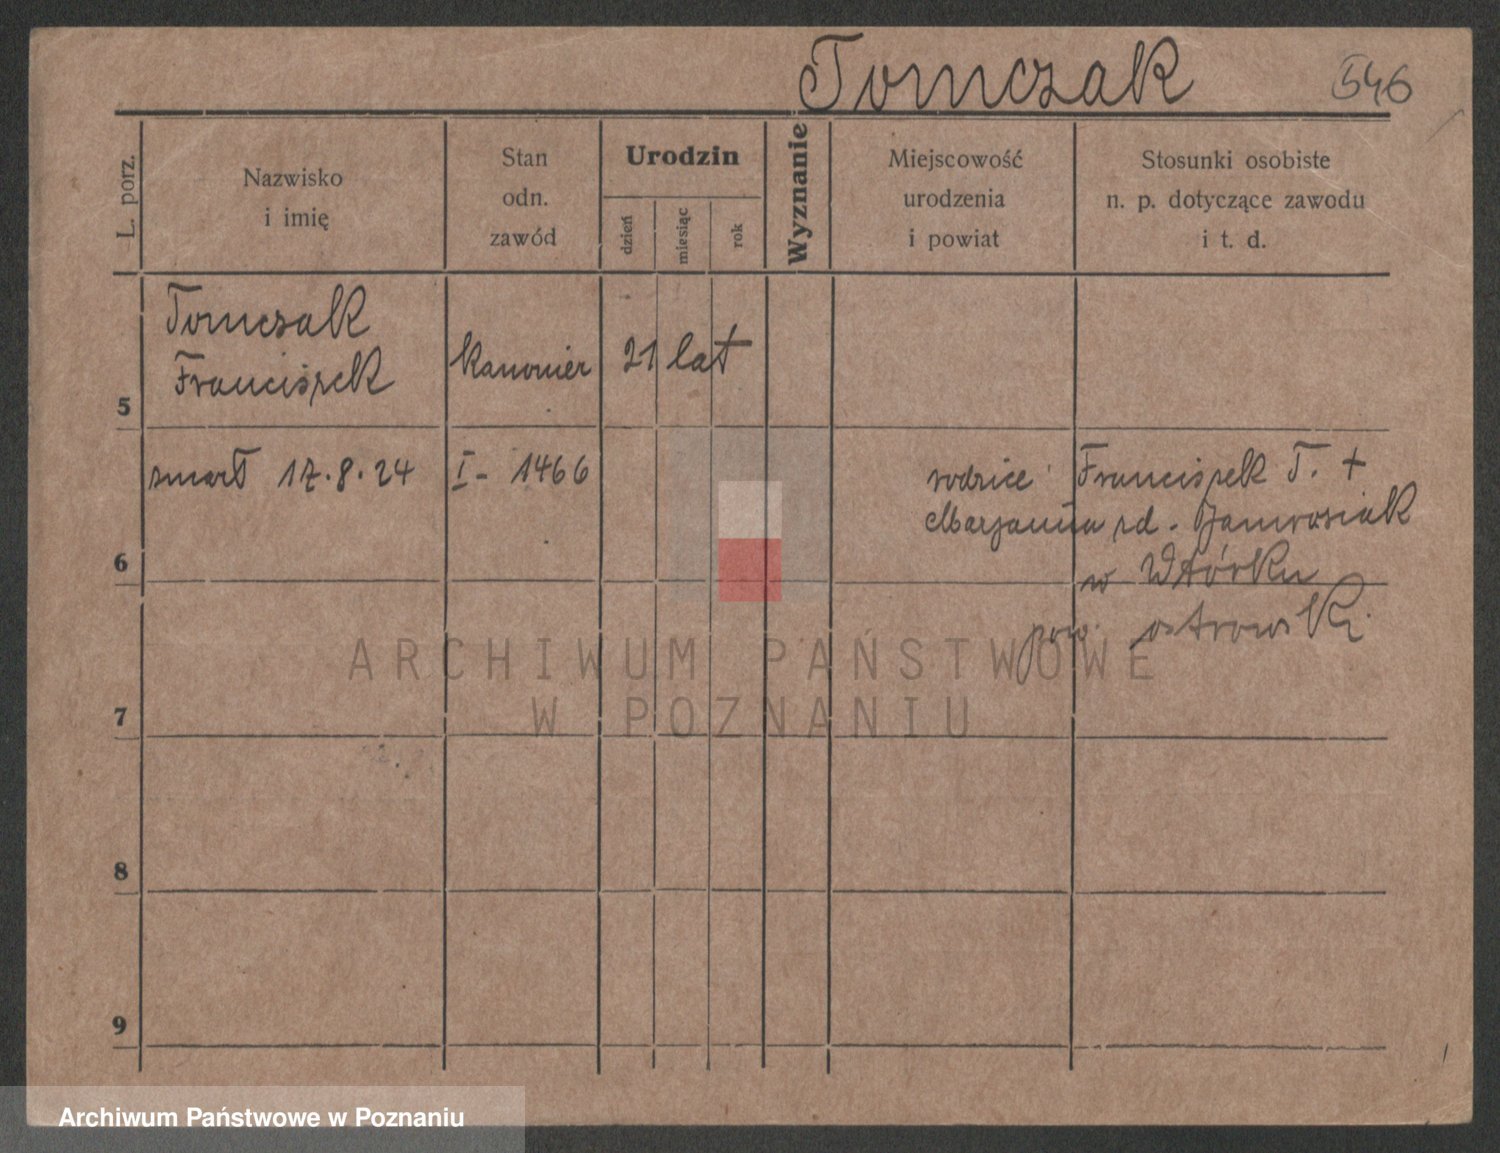 Tomczak 546
L. porz.
Nazwisko
i imię
Stan
odn.
zawód
Urodzin
dzień
miesiąc
rok
Wyznanie
Miejscowość
urodzenia
i powiat
Stosunki osobiste
n. p. dotyczące zawodu
i t. d.
Tomczak
Franciszek
kanonier 21 lat
5
zmarł 17.8.24 I- 1466 rodzice Franciszek T. +
Marjanna rd. Jamrosiak
6
w Wtórku
pow. ostrowski
ARCHIWUM PAŃSTWOWE
W POZNANIU
7
8
9
Archiwum Państwowe w Poznaniu